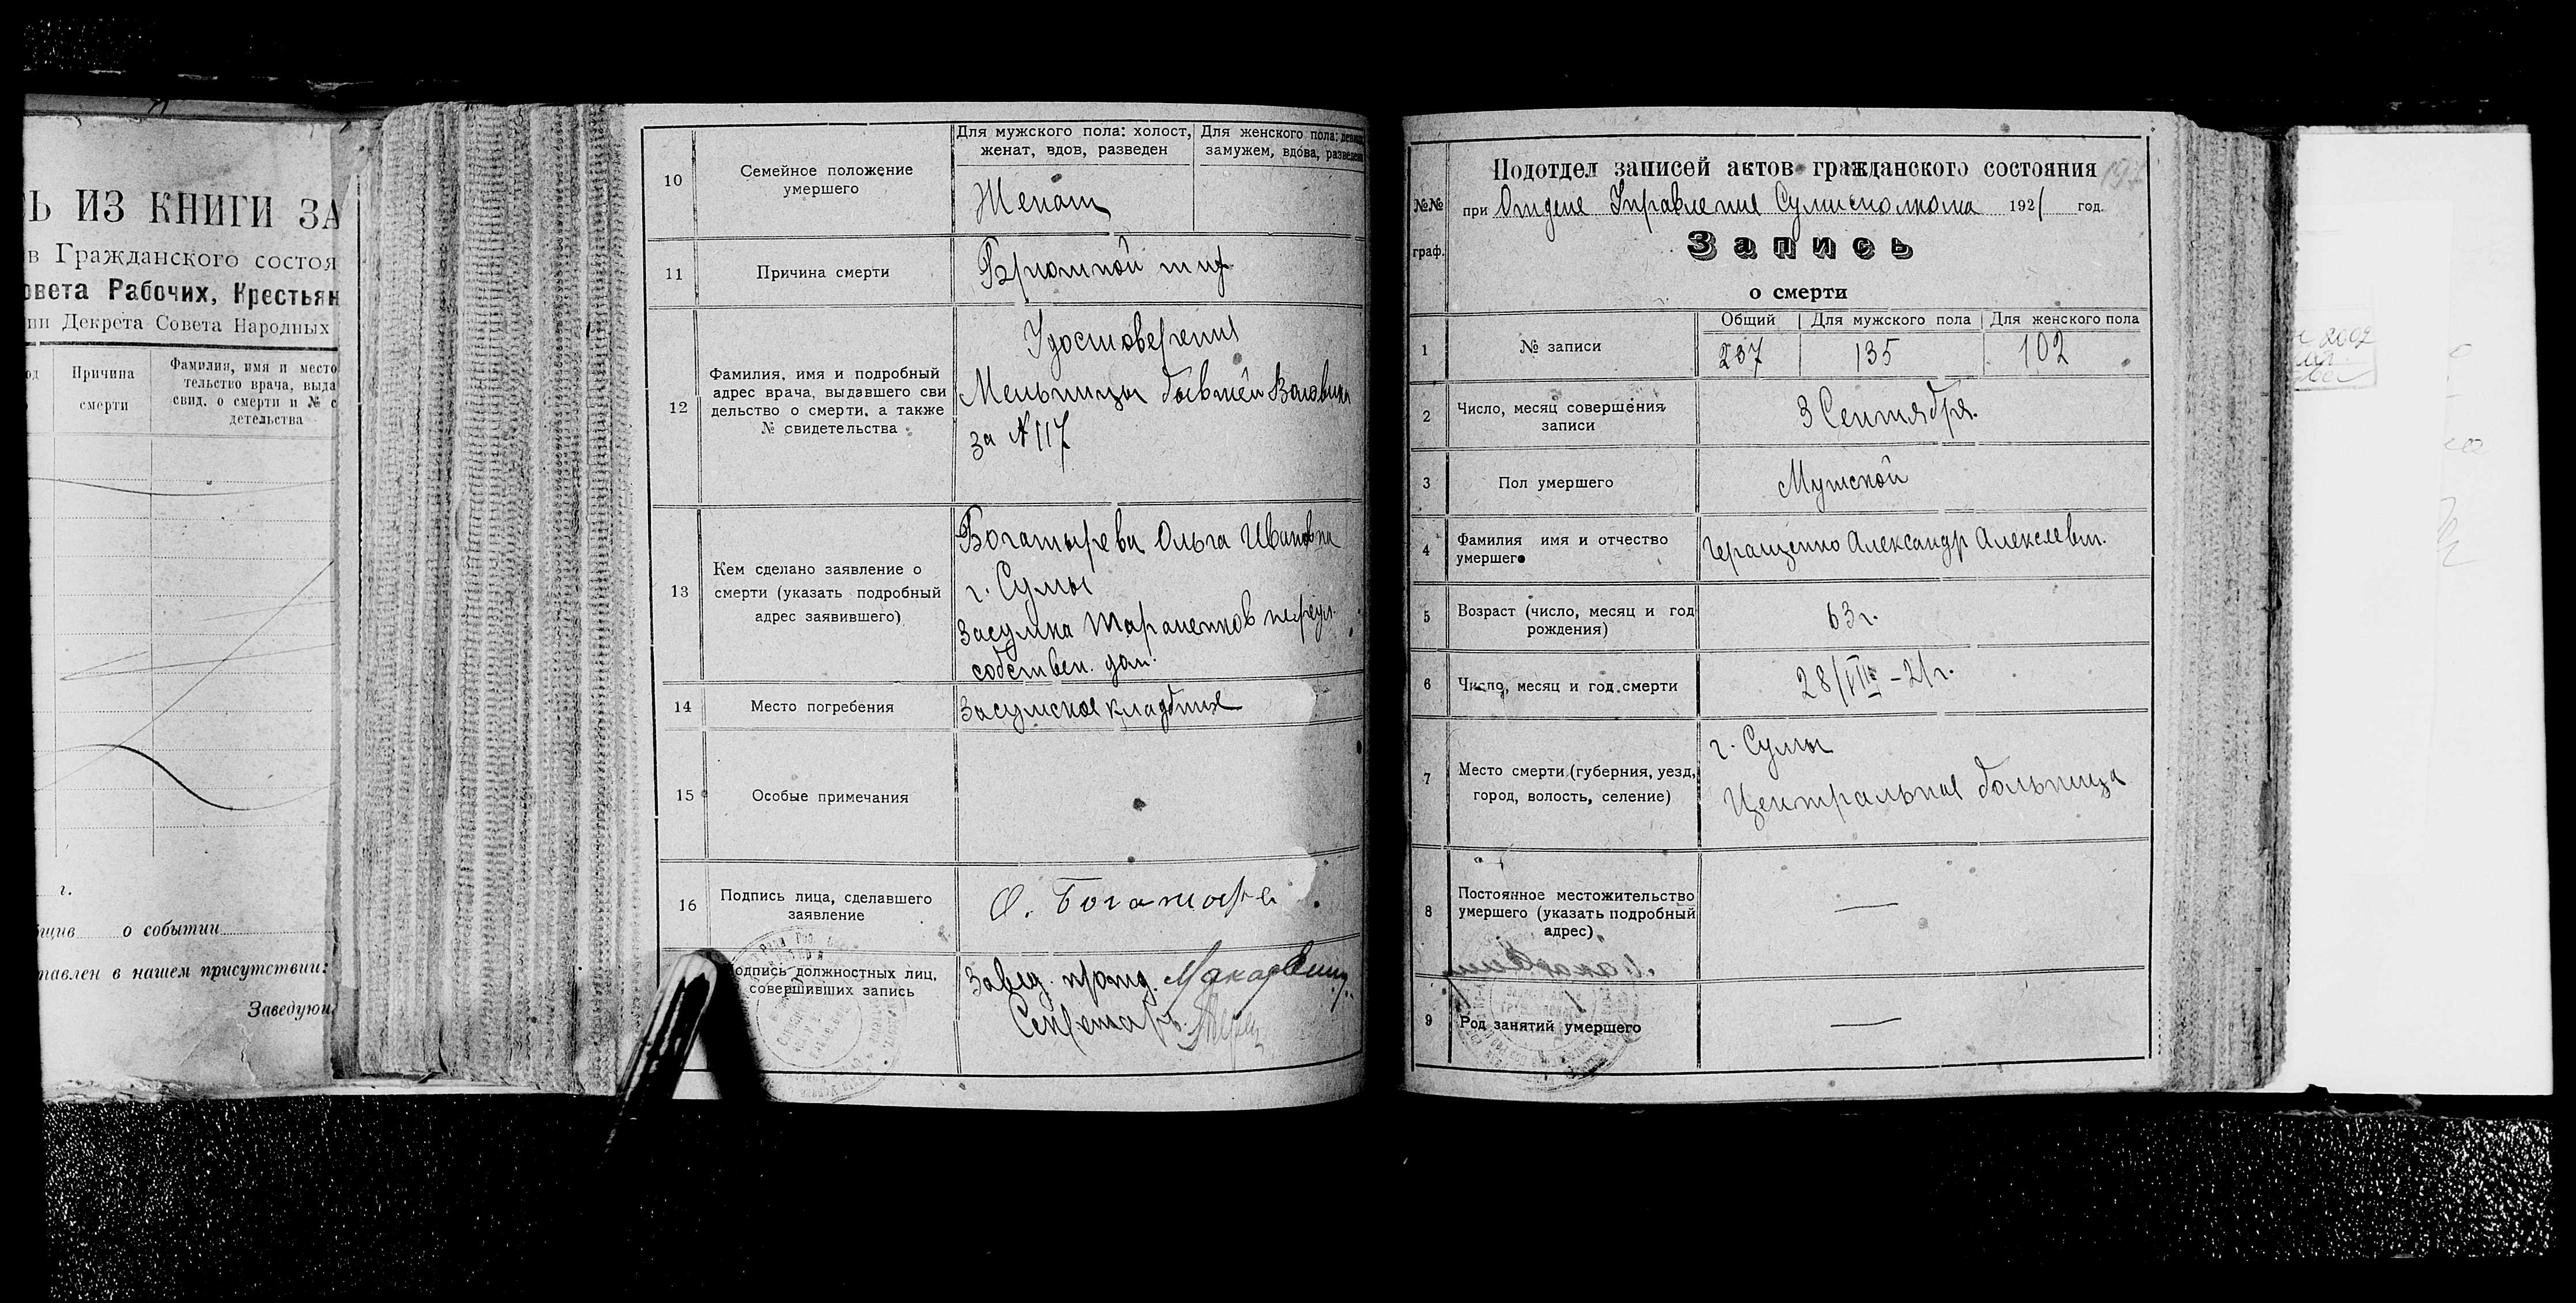 Ь ИЗ КНИГИ ЗА
в Гражданского состоя
овета Рабочих, Крестьян
ии Декрета Совета Народных
од
Причина
смерти
Фамилия, имя и место
тельство врача, выда
свид. о смерти и № с
детельства
г.
бщив о событии
тавлен в нашем присутствии:
Заведующ
10
Семейное положение
умершего
Для мужского пола: холост,
женат, вдов, разведен
Для женского пола: девица
замужем, вдова, разведена
Женат
11
Причина смерти
Брюшной тиф
12
Фамилия, имя и подробный
адрес врача, выдавшего сви
дельство о смерти, а также
№ свидетельства
Удостоверения
больницы бывшей
за № 117
13
Кем сделано заявление о
смерти (указать подробный
адрес заявившего)
Богатырева Ольга Ивановна
г. Сумы
Засумка переул.
собствен. дом.
14
Место погребения
Засумское кладбище
15
Особые примечания
16
Подпись лица, сделавшего
заявление
О. Богатырева
одпись должностных лиц,
совершивших запись
Завед. подотд.
Секретарь
№№
граф.
Подотдел записей актов гражданского состояния
при Отделе Управления Сумисполкома 1921 год.
Запись
о смерти
1
№ записи
Общий
Для мужского пола
Для женского пола
237
135
102
2
Число, месяц совершения
записи
3 Сентября.
3
Пол умершего
Мужской
4
Фамилия имя и отчество
умершего
Геращенко Александр Алексеевич.
5
Возраст (число, месяц и год
рождения)
63 г.
6
Число, месяц и год смерти
28/VIII – 21 г.
7
Место смерти (губерния, уезд,
город, волость, селение)
г. Сумы
Центральная больница
8
Постоянное местожительство
умершего (указать подробный
адрес)
—
9
Род занятий умершего
—